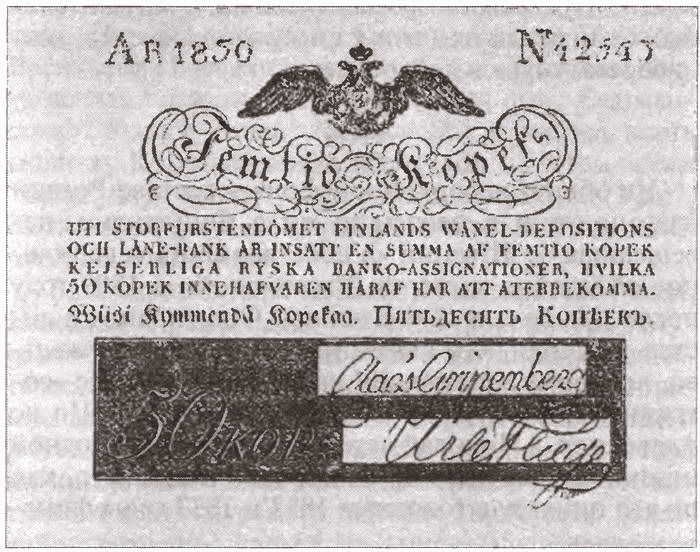 AR 1830
Femtio Kopek
UTI STORFURSTENDÖMET FINLANDS WÄXEL-DEPOSITIONS
OCH LÅNE-BANK ÄR INSATT EN SUMMA AF FEMTIO KOPEK
KEJSERLIGA RYSKA BANKO-ASSIGNATIONER, HVILKA
50 KOPEK INNEHAFVAREN HÄRAF HAR ATT ÅTERBEKOMMA.
Wiisi Kymmendä Kopekaa. Пятьдесять Копѣекъ.
50 KOP.